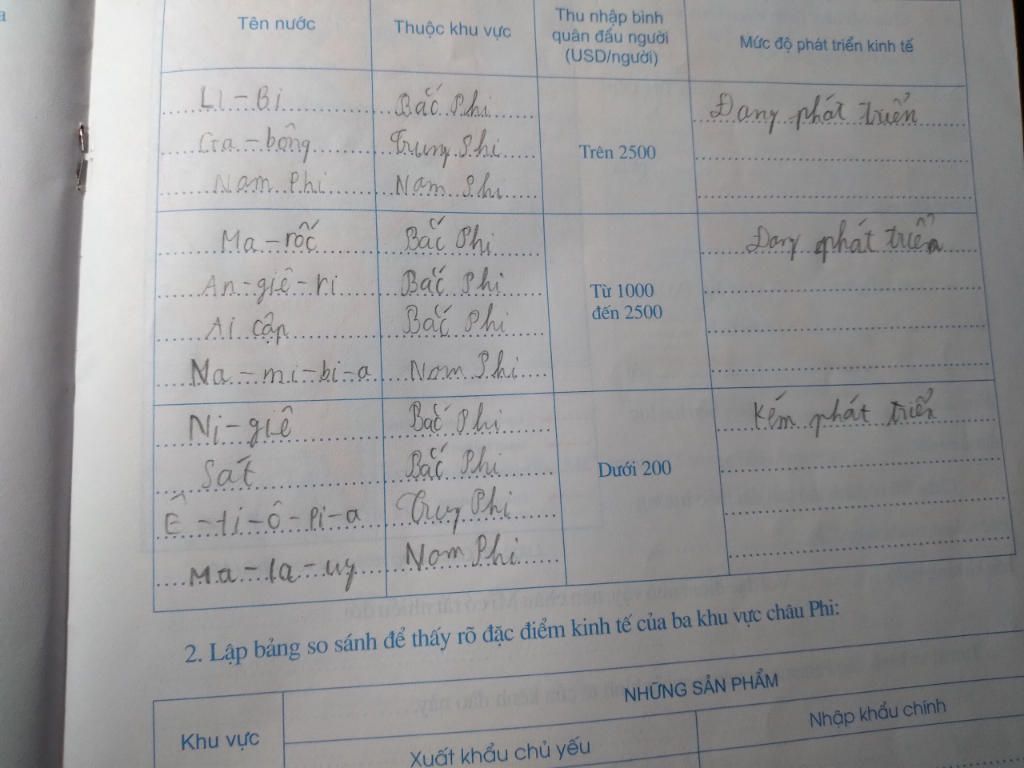 Tên nước
Thuộc khu vực
Thu nhập bình
quân đầu người
(USD/người)
Mức độ phát triển kinh tế
Li-Bi
Bắc Phi
Ga-bông
Trung Phi
Nam Phi
Nam Phi
Trên 2500
Đang phát triển
Ma-rốc
Bắc Phi
An-giê-ri
Bắc Phi
Ai Cập
Bắc Phi
Na-mi-bi-a
Nam Phi
Từ 1000
đến 2500
Đang phát triển
Ni-giê
Bắc Phi
Sát
Bắc Phi
Ê-ti-ô-pi-a
Trug Phi
Ma-la-uy
Nam Phi
Dưới 200
Kém phát triển
2. Lập bảng so sánh để thấy rõ đặc điểm kinh tế của ba khu vực châu Phi:
Khu vực
NHỮNG SẢN PHẨM
Xuất khẩu chủ yếu
Nhập khẩu chính